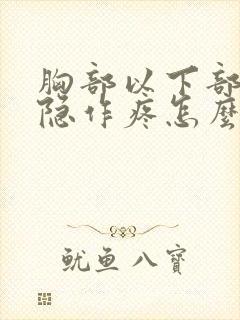 胸部以下部
隐作疼怎麼
鱿鱼八寳